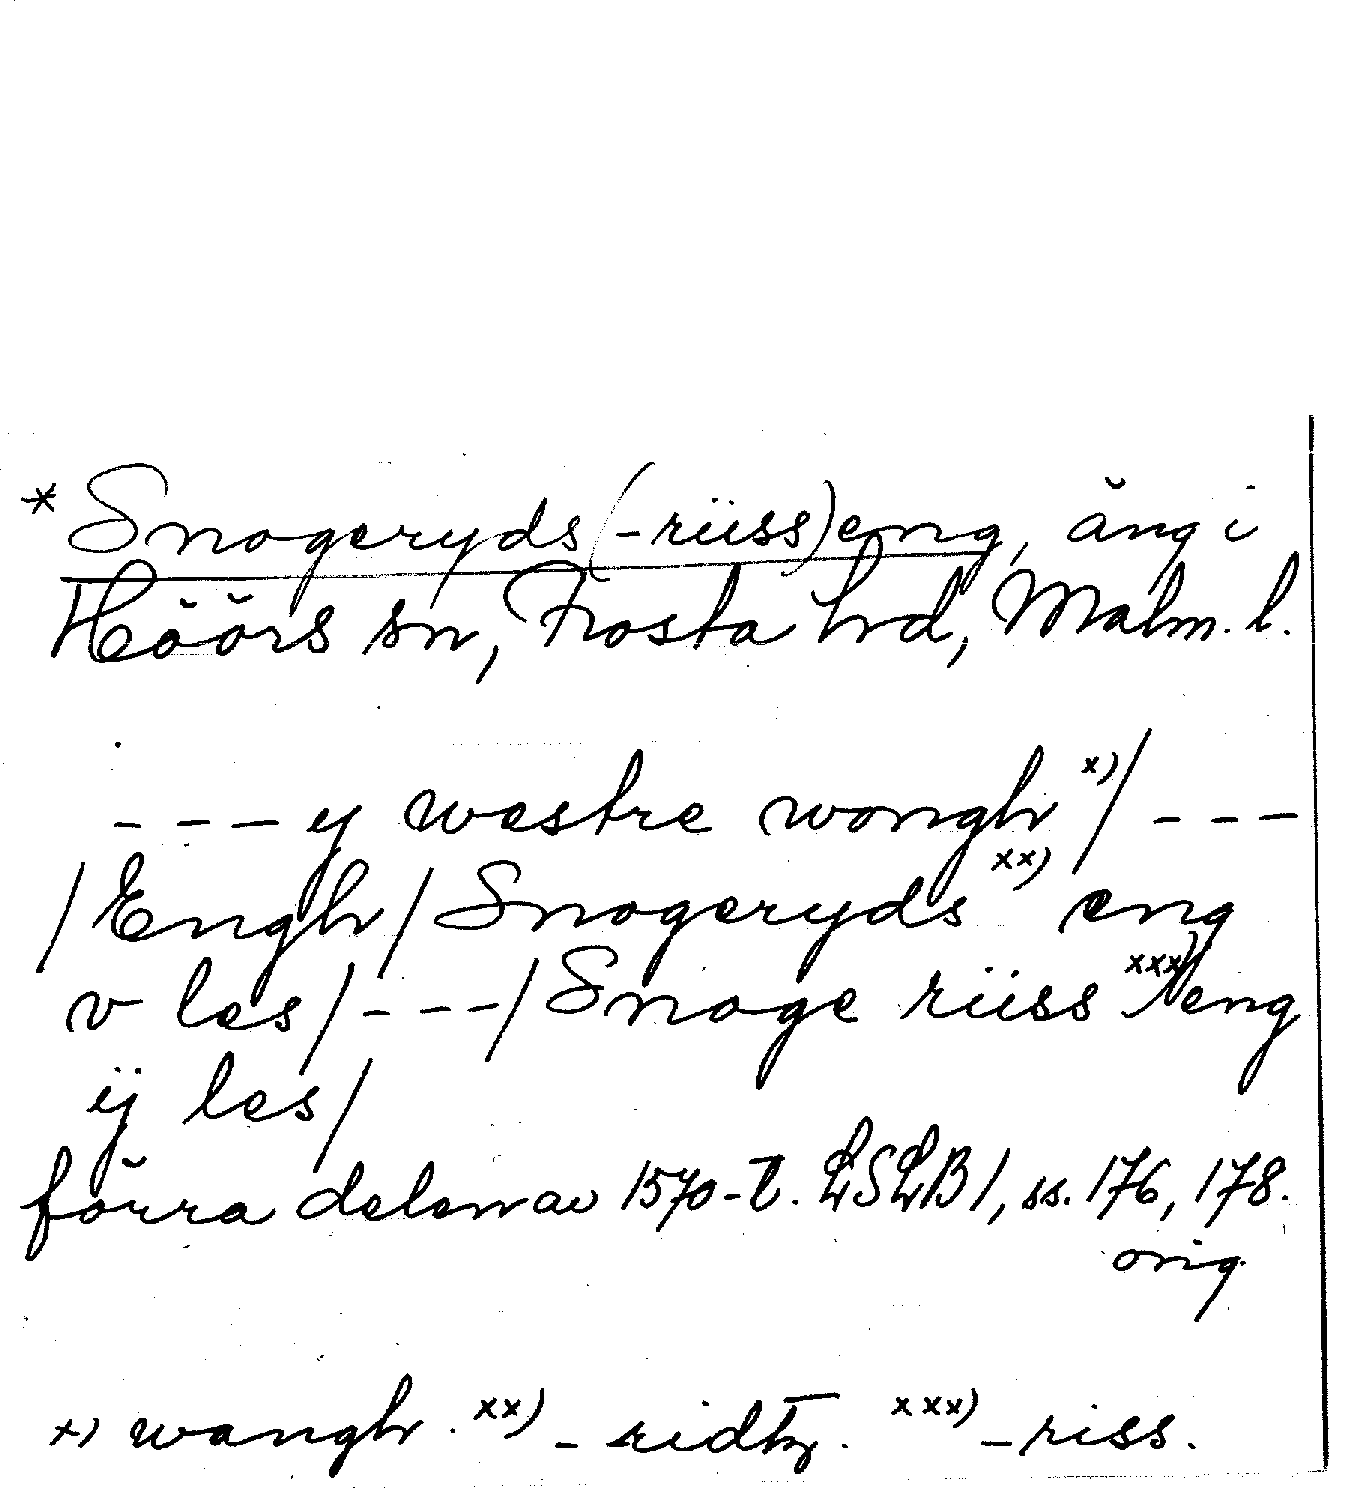 * Snogeryds(-rüss)eng, äng i
Höörs sn, Frosta hrd, Malm. l.
---y westre wongh x)/ ---
/Engh/ Snogeryds xx) eng
v les/---/Snoge rüss xxx) eng
ij les/
förra delen av 1570-t. LSLB 1, ss. 176, 178.
orig.
x) wangh. xx) -ridtz. xxx) -riss.